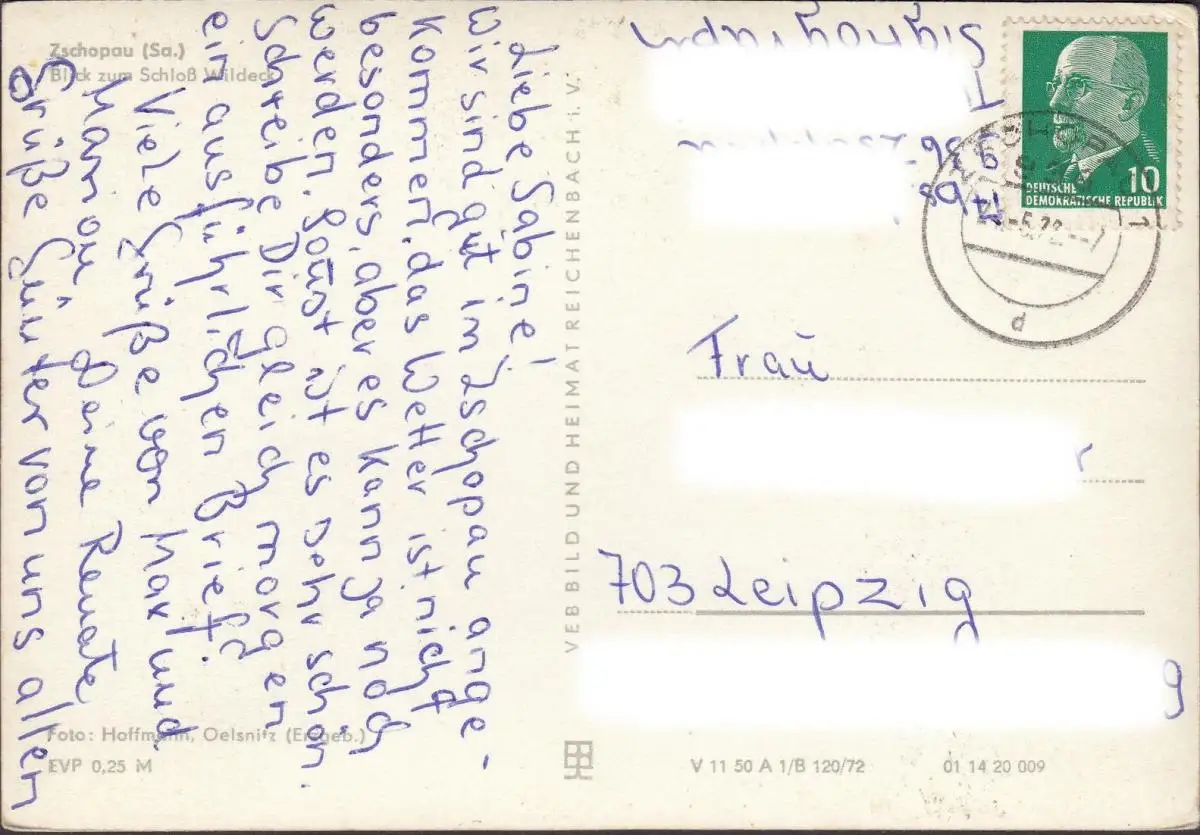 Zschopau (Sa.)
Blick zum Schloß Wildeck
Liebe Sabine!
Wir sind gut in Zschopau ange-
kommen, das Wetter ist nicht
besonders, aber es kann ja noch
werden. Sonst ist es sehr schön.
Schreibe Dir gleich morgen
ein ausführlichen Brief.
Viele Grüße von Max und
Mamou Deine Renate
Grüße Günter von uns allen
Foto: Hoffmann, Oelsnitz (Erzgeb.)
EVP 0,25 M
VEB BILD UND HEIMAT REICHENBACH i. V.
V 11 50 A 1/B 120/72
01 14 20 009
10
DEUTSCHE
DEMOKRATISCHE REPUBLIK
Frau
703 Leipzig